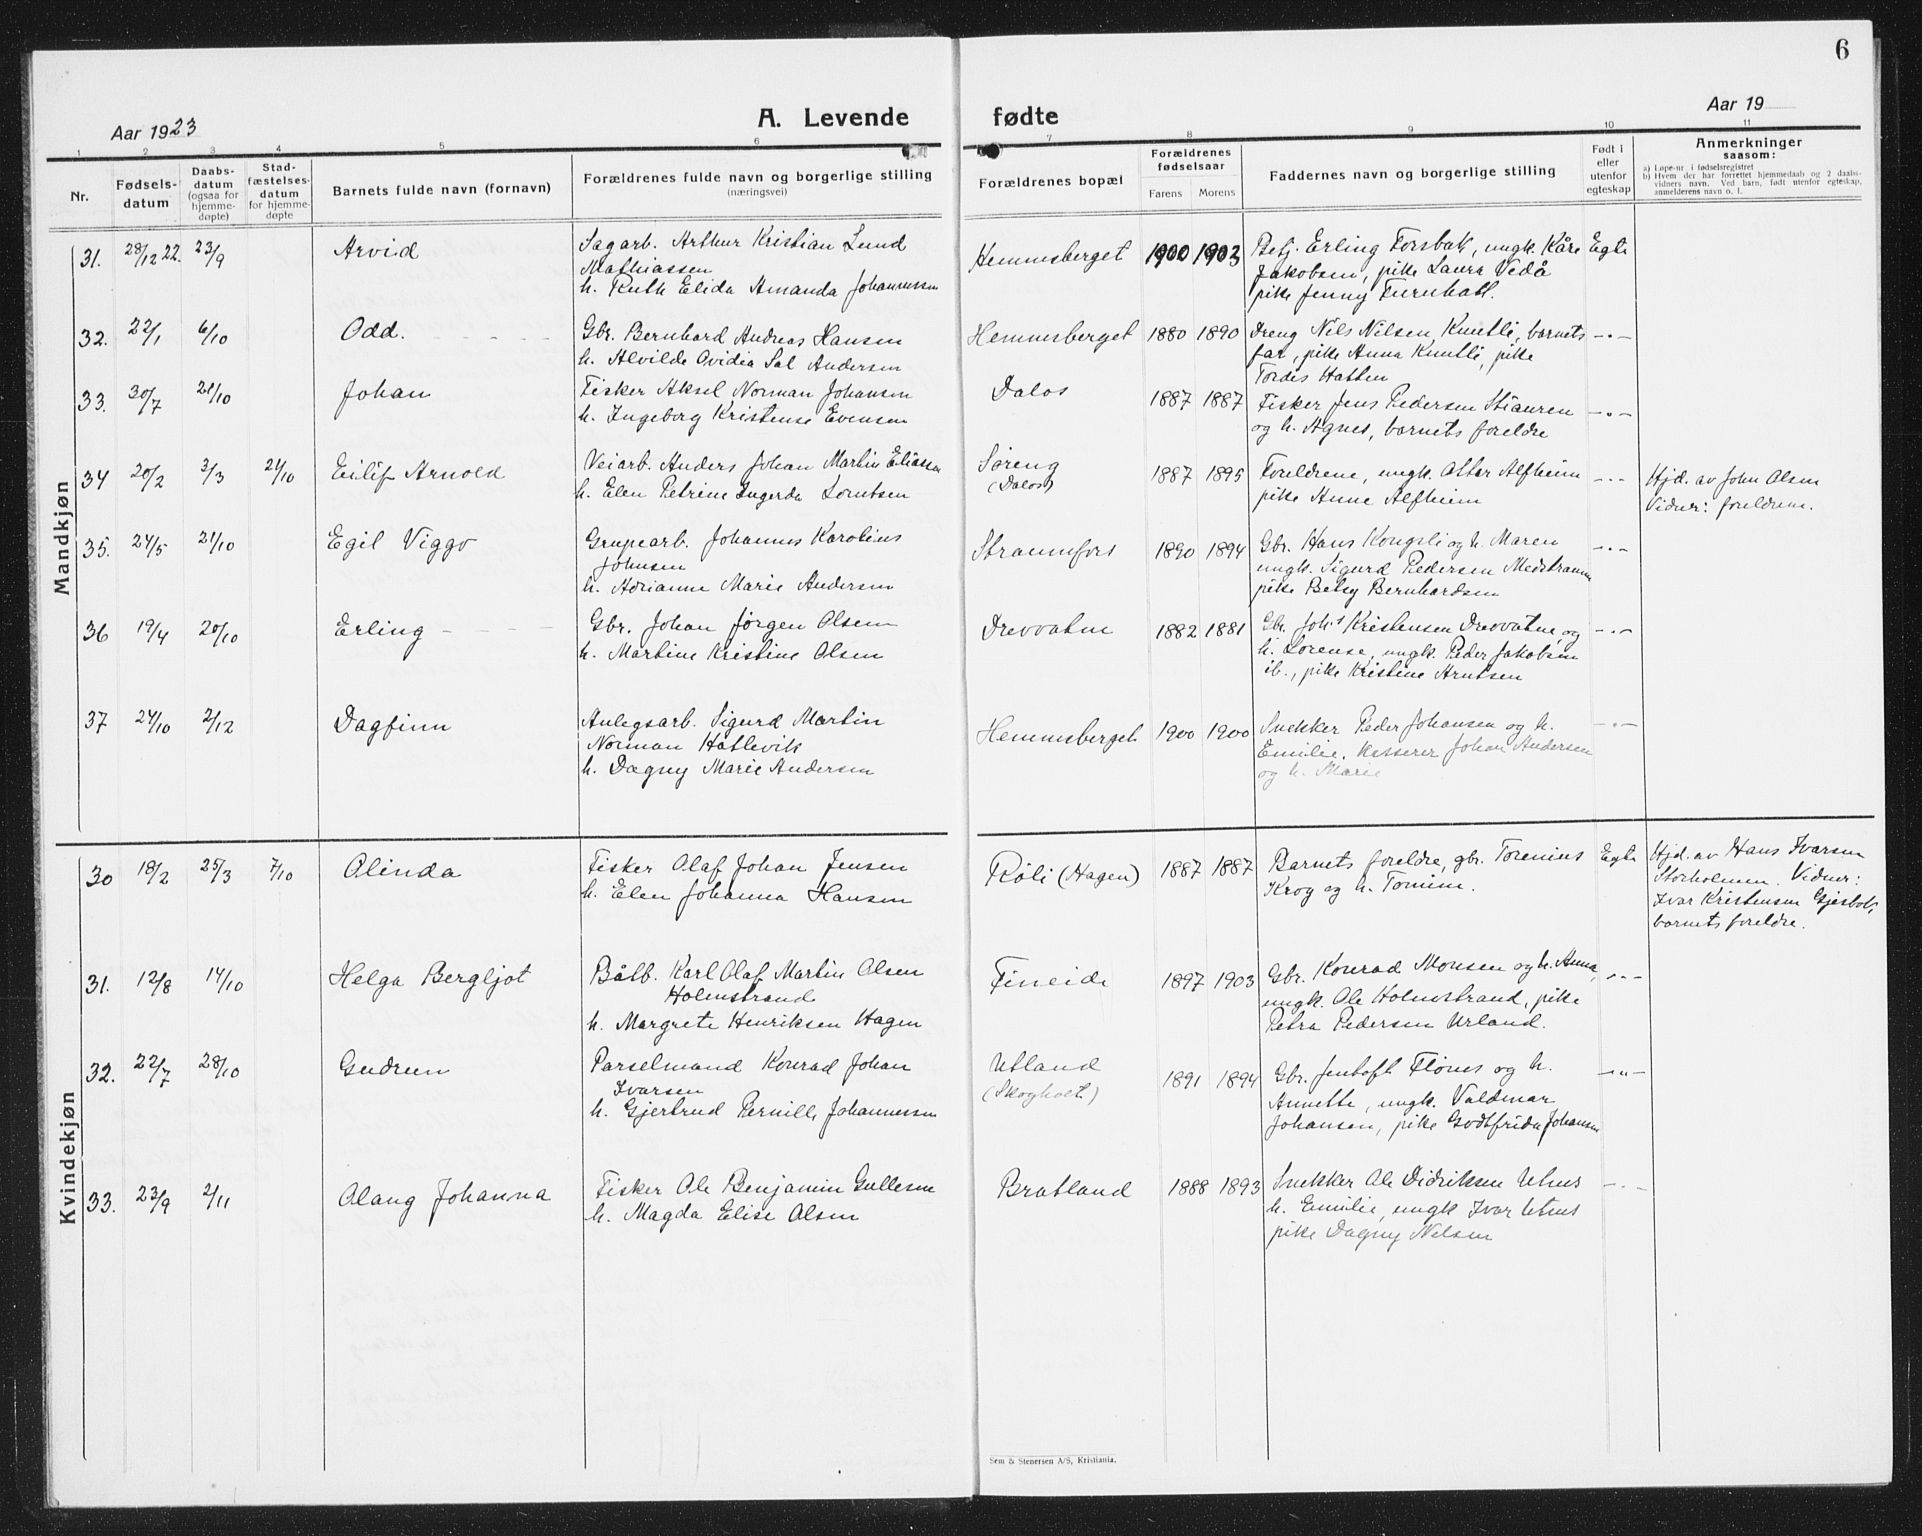 6
Aar 1923
A. Levende fødte
Aar 19
1 2 3 4 5 6 7 8 9 10 11
Nr.
Fødsels-
datum
Daabs-
datum
(ogsaa for
hjemme-
døpte)
Stad-
fæstelses-
datum
for hjemme-
døpte
Barnets fulde navn (fornavn)
Forældrenes fulde navn og borgerlige stilling
(næringsvei)
Forældrenes bopæl
Forældrenes
fødselsaar
Farens Morens
Faddernes navn og borgerlige stilling
Født i
eller
utenfor
egteskap
Anmerkninger
saasom:
a) Løpe-nr. i fødselsregistret
b) Hvem der har forrettet hjemmedaab og 2 daabs-
vidners navn. Ved barn, født utenfor egteskap,
anmelderens navn o. l.
Mandkjøn
31. 28/12 22. 23/9 Arvid
Sagarb. Arthur Kristian Lund
Mathiassen
h. Ruth Elida Amanda Johannessen
Hemnesberget 1900 1903
Betj. Erling Forsbak, ungk. Kåre
Jakobsen, pike Laura Vedå
pike Jenny Furuhatt.
Egte
32. 22/1 6/10 Odd.
Gbr. Bernhard Andreas Hansen
h. Alvilde Ovidia Sal Andersen
Hemnesberget 1880 1890
Dreng Nils Nilsen, Knutli, barnets
far, pike Anna Knutli, pike
Tordis Hatten
-"-
33. 30/7 21/10 Johan
Fisker Aksel Norman Johansen
h. Ingeborg Kristense Evensen
Dalos 1887 1887
Fisker Jens Pedersen Stiauren
og h. Agnes, barnets foreldre
-"-
34 20/2 3/3 21/10 Eilif Arnold
Veiarb. Anders Johan Martin Eliassen
h. Elen Petrine Ingerda Lorntsen
Søreng
(Dalos) 1887 1895
Foreldrene, ungk. Ottar Alfheim
pike Anne Alfheim
-"-
Hjd. av John Olsen
Vidner: foreldrene.
35. 24/5 21/10 Egil Viggo
Grupearb. Johannes Karolius
Johnsen
h. Adrianne Marie Andersen
Straumfors 1890 1894
Gbr. Hans Kongsli og h. Maren
ungk. Sigurd Pedersen Medstraumen
pike Betsy Bernhardsen
-"-
36 19/4 20/10 Erling
Gbr. Johan Jørgen Olsen
h. Martine Kristine Olsen
Drevvatne 1882 1881
Gbr. Johs Kristensen Drevvatne, og
h. Lorense, ungk. Peder Jakobsen
ib., pike Kristine Arntsen
-"-
37 24/10 2/12 Dagfinn
Anlegsarb. Sigurd Martin
Norman Hatlevik
h. Dagny Marie Andersen
Hemnesberget 1900 1900
Snekker Peder Johansen og h.
Emilie. Kasserer Johan Andersen
og h. Marie
-"-
Kvindekjøn
30 18/2 25/3 7/10 Olinda
Fisker Olaf Johan Jensen
h. Elen Johanna Hansen
Røli (Hagen) 1887 1887
Barnets foreldre, gbr. Torenius
Krog og h. Tomine.
Egte
Hjd. av Hans Ivarsen
Storholmen. Vidner:
Ivar Kristensen Gjesbak,
barnets foreldre.
31. 12/8 14/10 Helga Bergljot
Båtb. Karl Olaf Martin Olsen
Holmstrand
h. Margrete Henriksen Hagen
Fineide 1897 1903
Gbr. Konrad Monsen og h. Anna,
ungk. Ole Holmstrand, pike
Petra Pedersen Urland.
-"-
32. 22/7 28/10 Gudrun
Parselmand Konrad Johan
Ivarsen
h. Gjertrud Pernille Johannessen
Utland
(Skogholt) 1891 1894
Gbr. Jentoft Flønes og h.
Annette, ungk. Valdemar
Johansen, pike Godtfrida Johansen
-"-
33. 23/9 2/11 Olaug Johanna
Fisker Ole Benjamin Gullesen
h. Magda Elise Olsen
Bratland 1888 1893
Snekker Ole Didriksen Uhus
h. Emilie, ungk Ivar Uhus
pike Dagny Nilsen
-"-
Sem & Stenersen A/S, Kristiania.